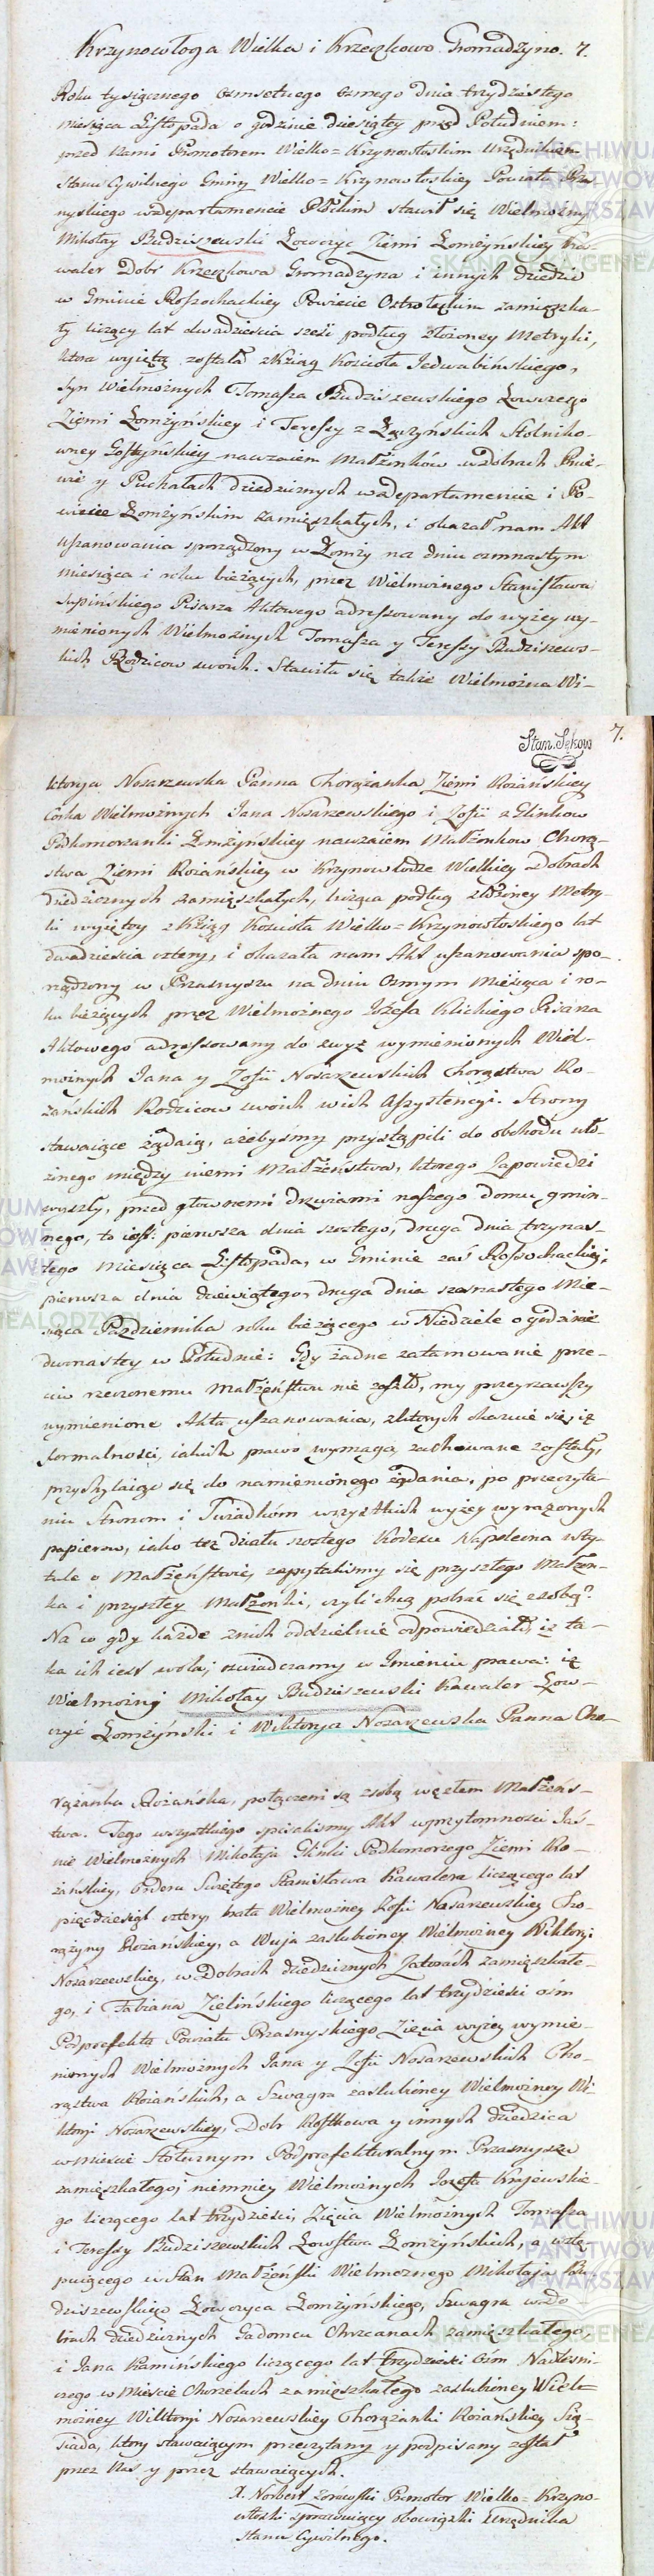 Krzynowłoga Wielka i Krzeczkowo Gromadzyno. 7.
Roku tysiącznego osmsetnego osmego dnia trzydziestego
miesiąca Listopada o godzinie dziesiątey przed Południem:
przed Nami Promotorem Wielko=Krzynowłoskim Urzędnikiem
Stanu Cywilnego Gminy Wielko=Krzynowłoskiey Powiatu Prza-
snyskiego w departamencie Płockim stawił się Wielmożny
Mikołay Budziszewski Łowczyc Ziemi Łomżynskiey Ka-
waler Dobr Krzeczkowa Gromadzyna i innych Dziedzic
w Gminie Rossochackiey Powiecie Ostrołęckim zamieszka-
ły liczący lat dwadzieścia sześć podług złożoney Metryki,
która wyiętą została z Xiąg Kościoła Jedwabińskiego,
syn Wielmożnych Tomasza Budziszewskiego Łowczego
Ziemi Łomżyńskiey i Teressy z Łączyńskich Stolniko-
wney Gostyńskiey nawzaiem Małżonków w dobrach
y Puchałach dziedzicznych w departamencie i Po-
wiecie Łomżyńskim zamięszkałych, i okazał nam Akt
uszanowania sporządzony w Łomży na dniu osmnastym
miesiąca i roku bieżących, przez Wielmożnego Stanisława
Supińskiego Pisarza Aktowego adressowany do wyżey wy-
mienionych Wielmożnych Tomasza y Teressy Budziszews-
kich Rodziców swoich. Stawiła się także Wielmożna Wi-
Stan. Sękow 7.
ktorya Nosarzewska Panna Chorążanka Ziemi Rożańskiey
córka Wielmożnych Jana Nosarzewskiego i Zofii z Glinkow
Podkomorzanki Łomżyńskiey nawzaiem Małżonkow Chorą-
stwa Ziemi Rożańskiey w Krzynowłodze Wielkiey Dobrach
dziedzicznych zamięszkałych, licząca podług złożoney Metry-
ki wyiętey z Xiąg Kościoła Wielko=Krzynowłoskiego lat
dwadzieścia cztery, i okazała nam Akt uszanowania spo-
rządzony w Przasnyszu na dniu Osmym Miesiąca i ro-
ku bieżących przez Wielmożnego Józefa Klickiego Pisarza
Aktowego adressowany do wyż wymienionych Wiel-
możnych Jana y Zofii Nosarzewskich Chorąstwa Ro-
żańskich Rodziców swoich w ich Assystencyi. Strony
stawaiące żądaią, ażebyśmy przystąpili do obchodu uło-
żonego między niemi Małżeństwa, którego Zapowiedzi
wyszły, przed głownemi drzwiami naszego domu gmin-
nego, to iest: pierwsza dnia szostego, druga dnia trzynas-
tego miesiąca Listopada, w Gminie zaś Rossochackiey,
pierwsza dnia dziewiątego, druga dnia szesnastego Mie-
siąca Października roku bieżącego w Niedziele o godzinie
dwunastey w Południe: Gdy żadne zatamowanie prze-
ciw rzeczonemu Małżeństwu nie zaszło, my przeyrzawszy
wymienione Akta uszanowania, z których okazuie się, iż
formalności, iakich prawo wymaga, zachowane zostały,
przychylaiąc się do namienionego żądania, po przeczyta-
niu Stronom i Swiadkóm wszystkich wyżey wyrażonych
papierow, iako też działu szostego Kodexu Napoleona w ty-
tule o Małżeństwie, zapytaliśmy się przyszłego Małżon-
ka i przyszłey Małżonki, czyli chcą pobrać się z sobą?
Na co gdy każde z nich oddzielnie odpowiedziało, iż ta-
ka ich iest wola; oswiadczamy w Imieniu prawa: iż
Wielmożny Mikołay Budziszewski Kawaler Łow-
czyc Łomżyński i Wiktorya Nosarzewska Panna Cho-
rążanka Rożańska, połączeni są z sobą węzłem Małżeńs-
twa. Tego wszystkiego spisaliśmy Akt w przytomności Jaś-
nie Wielmożnych Mikołaja Glinki Podkomorzego Ziemi Ro-
żańskiey, Orderu Swiętego Stanisława Kawalera liczącego lat
pięćdziesiąt cztery, brata Wielmożney Zofii Nosarzewskiey Cho-
rążyny Rożańskiey, a Wuja zaslubioney Wielmożney Wiktoryi
Nosarzewskiey, w Dobrach dziedzicznych Zatorach zamięszkałe-
go, i Fabiana Zielińskiego liczącego lat trzydzieści ośm
Podprefekta Powiatu Przasnyskiego Zięcia wyżey wymie-
nionych Wielmożnych Jana y Zofii Nosarzewskich Cho-
rąstwa Rożańskich, a Szwagra zaslubioney Wielmożney Wi-
ktoryi Nosarzewskiey, Dobr Rostkowa y innych dziedzica
w mieście Stołecznym Podprefekturalnym Przasnyszu
zamięszkałego; niemniey Wielmożnych Jozefa Krajewskie-
go liczącego lat trzydzieści, Zięcia Wielmożnych Tomasza
i Teressy Budziszewskich Łowstwa Łomżyńskich, a wstę-
puiącego w Stan Małżeński Wielmożnego Mikołaja Bu-
dziszewskiego Łowczyca Łomżyńskiego, Szwagra w do-
brach dziedzicznych Gadomcu Chrzcanach zamięszkałego
i Jana Kamińskiego liczącego lat trzydzieści Osm Nadleśni-
czego w Mieście Chorzelach zamięszkałego zaslubioney Wiel-
możney Wiktoryi Nosarzewskiey Chorążanki Rożańskiey Są-
siada, ktory stawaiącym przeczytany y podpisany został
przez Nas y przez stawaiących.
X. Norbert Promotor Wielko=Krzyno-
włoski sprawuiący obowiązki Urzędnika
Stanu Cywilnego.